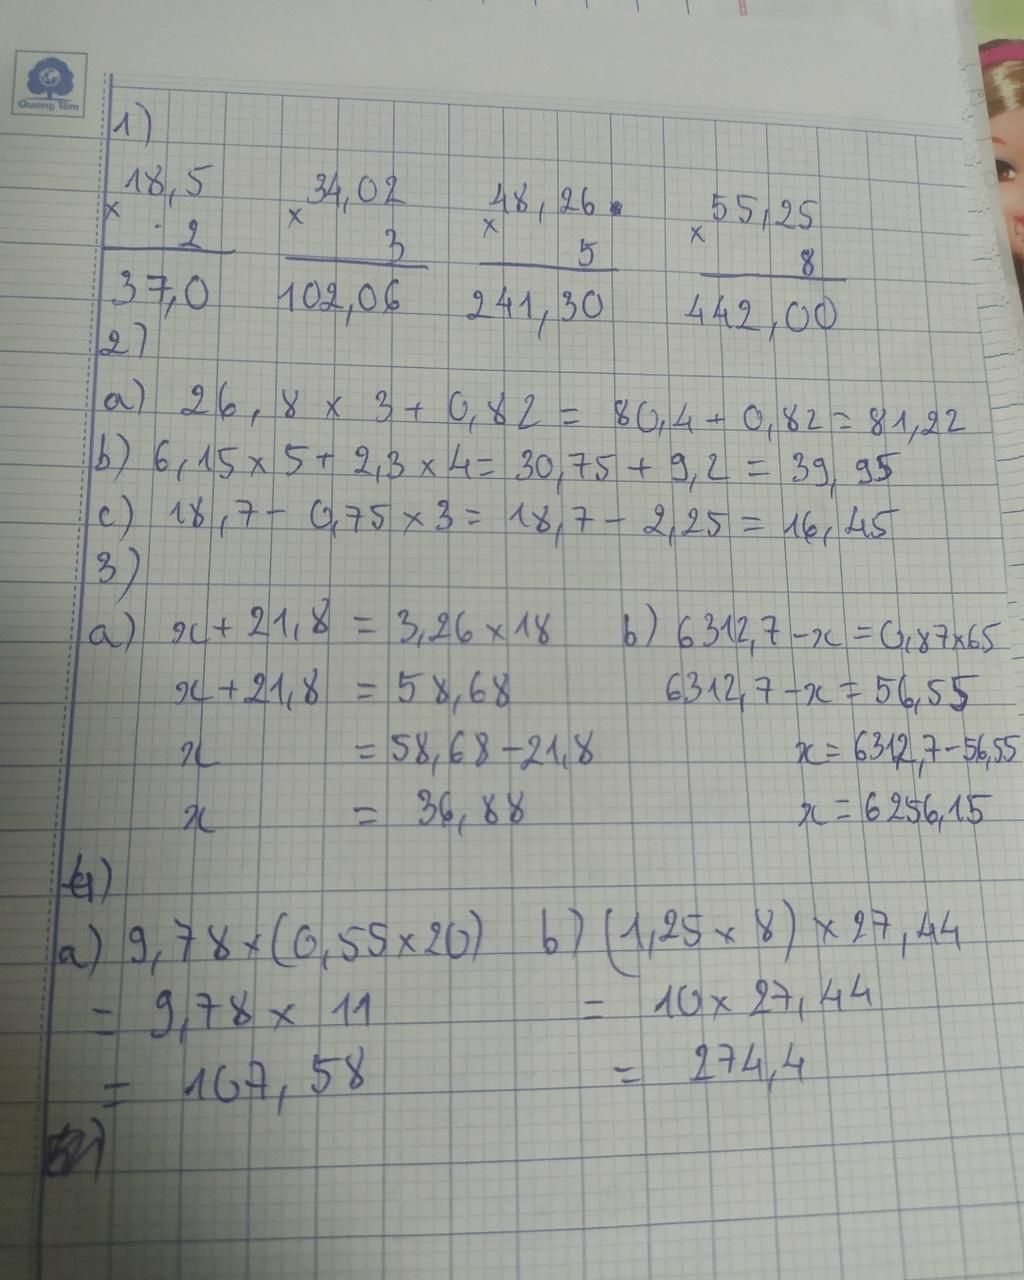 Quang Tâm
1)
18,5
×
2
37,0
34,02
×
3
102,06
48,26
×
5
241,30
55,25
×
8
442,00
2)
a) 26,8 × 3 + 0,82 = 80,4 + 0,82 = 81,22
b) 6,15 × 5 + 2,3 × 4 = 30,75 + 9,2 = 39,95
c) 18,7 - 0,75 × 3 = 18,7 - 2,25 = 16,45
3)
a) x + 21,8 = 3,26 × 18
x + 21,8 = 58,68
x = 58,68 - 21,8
x = 36,88
b) 6312,7 - x = 0,87 × 65
6312,7 - x = 56,55
x = 6312,7 - 56,55
x = 6256,15
4)
a) 9,78 × (0,55 × 20)
= 9,78 × 11
= 107,58
b) (1,25 × 8) × 27,44
= 10 × 27,44
= 274,4